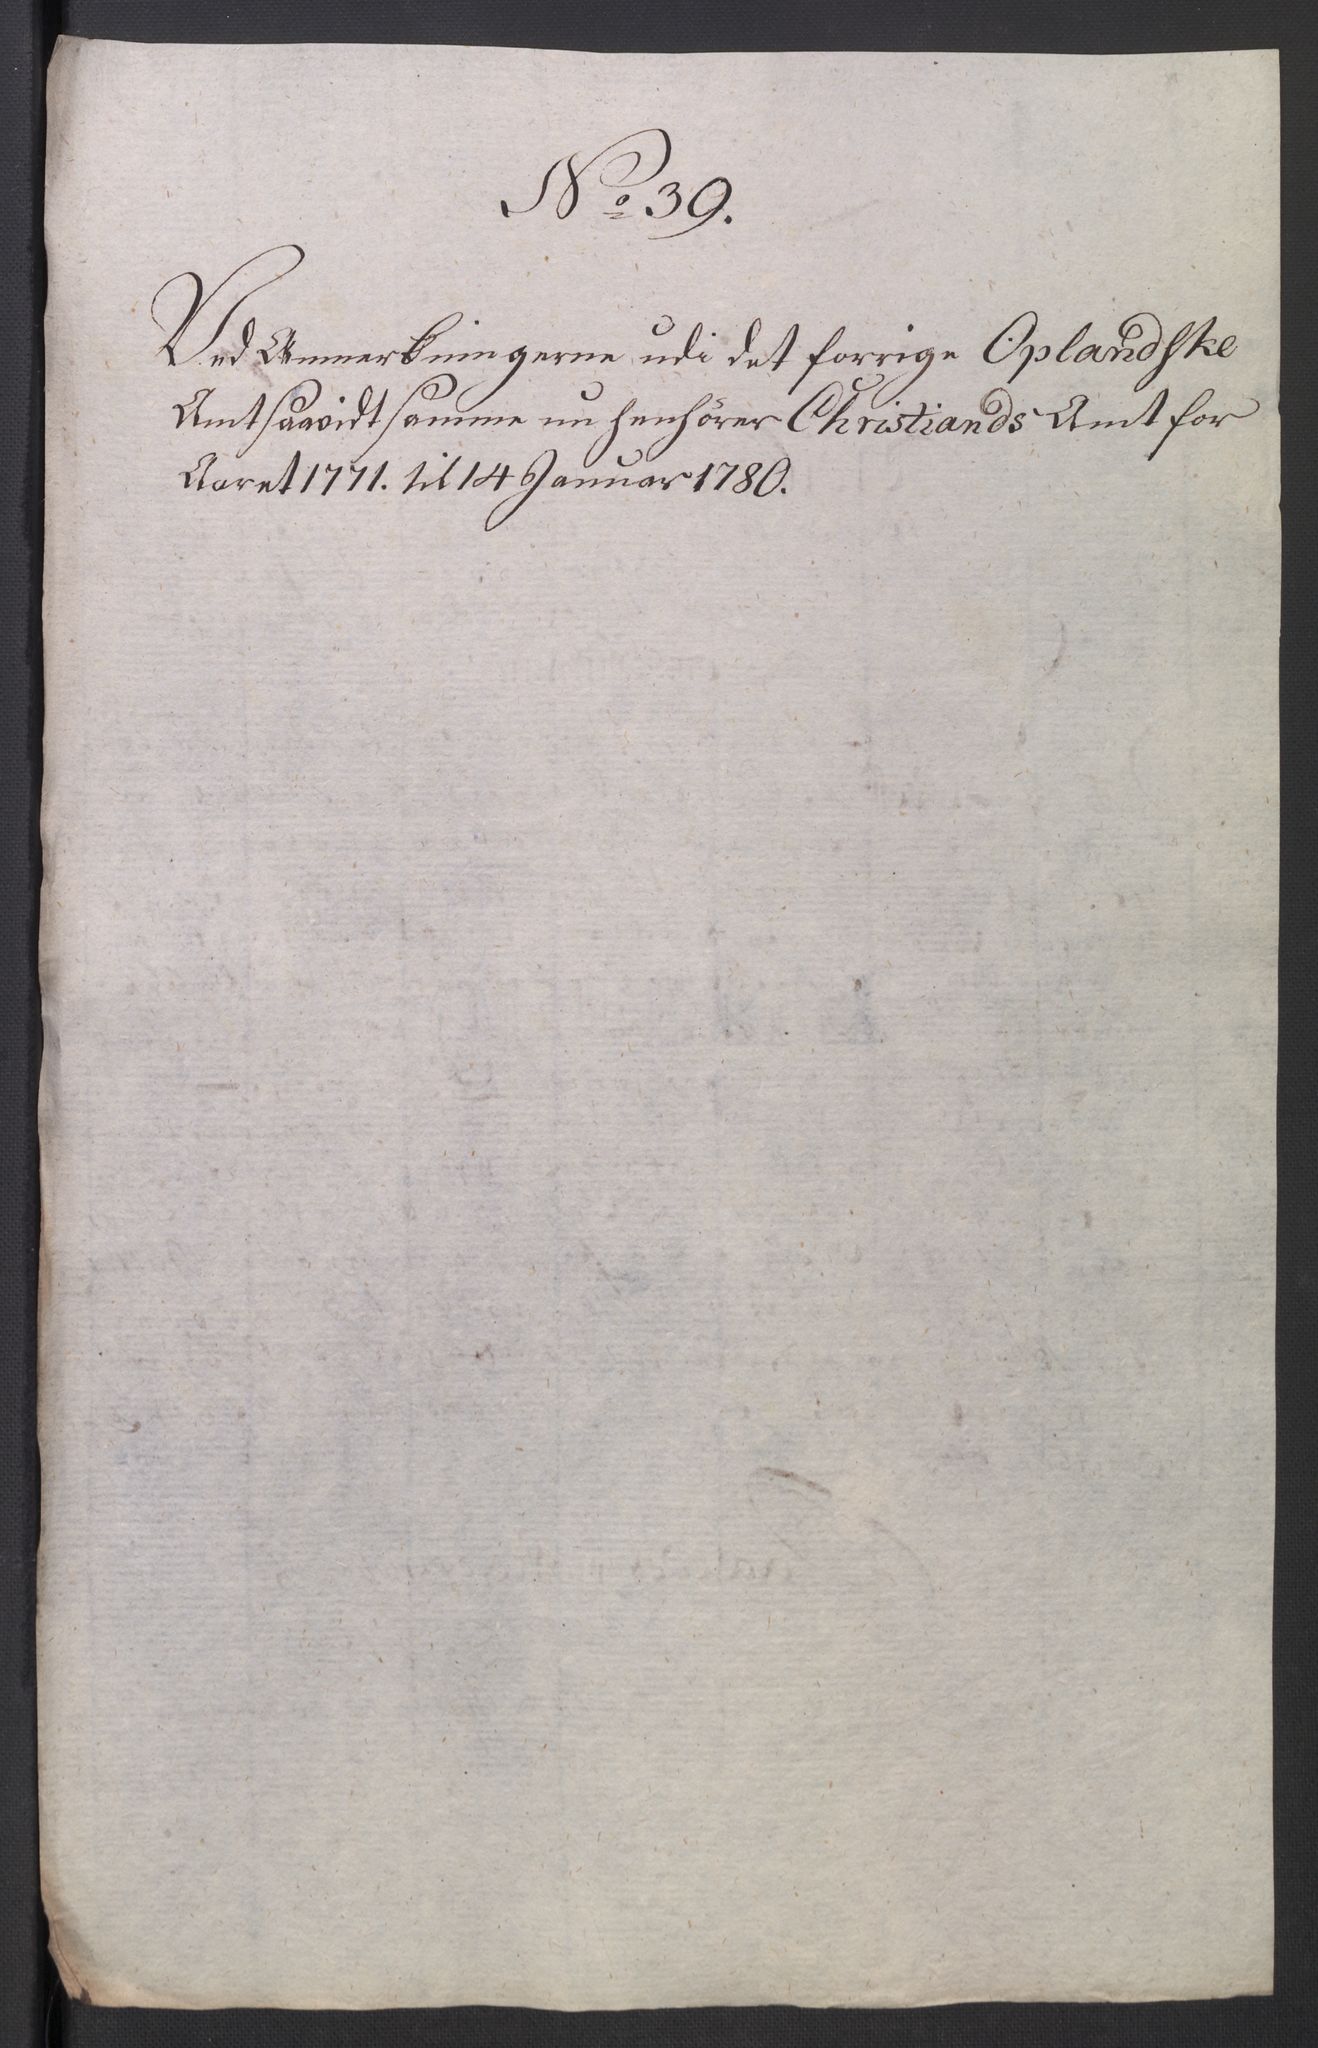 No 39.
Ved Anmerkningerne udi det forrige Oplandske
Amt saavidt samme nu henhörer Christiands Amt for
Aaret 1771. til 14 Januar 1780.